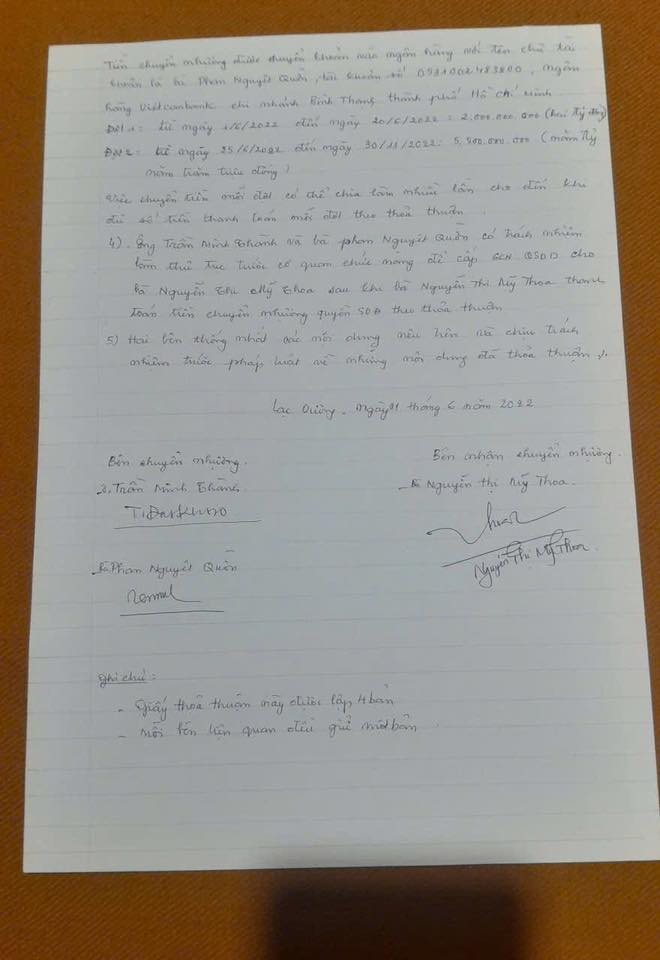 Tiền chuyển nhượng được chuyển khoản vào ngân hàng với tên chủ tài
khoản là bà Phan Nguyệt Quờn, tài khoản số 0931002483800, ngân
hàng Vietcombank chi nhánh Bình Thạnh thành phố Hồ Chí Minh
Đợt 1: từ ngày 1/6/2022 đến ngày 20/6/2022: 2.000.000.000 (hai tỷ đồng)
Đợt 2: từ ngày 25/6/2022 đến ngày 30/11/2022: 5.500.000.000 (năm tỷ
năm trăm triệu đồng)
Việc chuyển tiền mỗi đợt có thể chia làm nhiều lần cho đến khi
đủ số tiền thanh toán mỗi đợt theo thỏa thuận.
4). Ông Trần Minh Thành và bà Phan Nguyệt Quờn có trách nhiệm
làm thủ tục trước cơ quan chức năng để cấp GCN QSDĐ cho
bà Nguyễn Thị Mỹ Thoa sau khi bà Nguyễn Thị Mỹ Thoa thanh
toán tiền chuyển nhượng quyền SDĐ theo thỏa thuận.
5) Hai bên thống nhất các nội dung nêu trên và chịu trách
nhiệm trước pháp luật về những nội dung đã thỏa thuận./.
Lạc Dương, ngày 01 tháng 6 năm 2022
Bên chuyển nhượng.
Bên nhận chuyển nhượng.
Trần Minh Thành.
Nguyễn Thị Mỹ Thoa.
Thoa
Nguyễn Thị Mỹ Thoa.
Bà Phan Nguyệt Quờn
Ghi chú:
- Giấy thỏa thuận này được lập 4 bản
- Mỗi bên liên quan đều giữ một bản